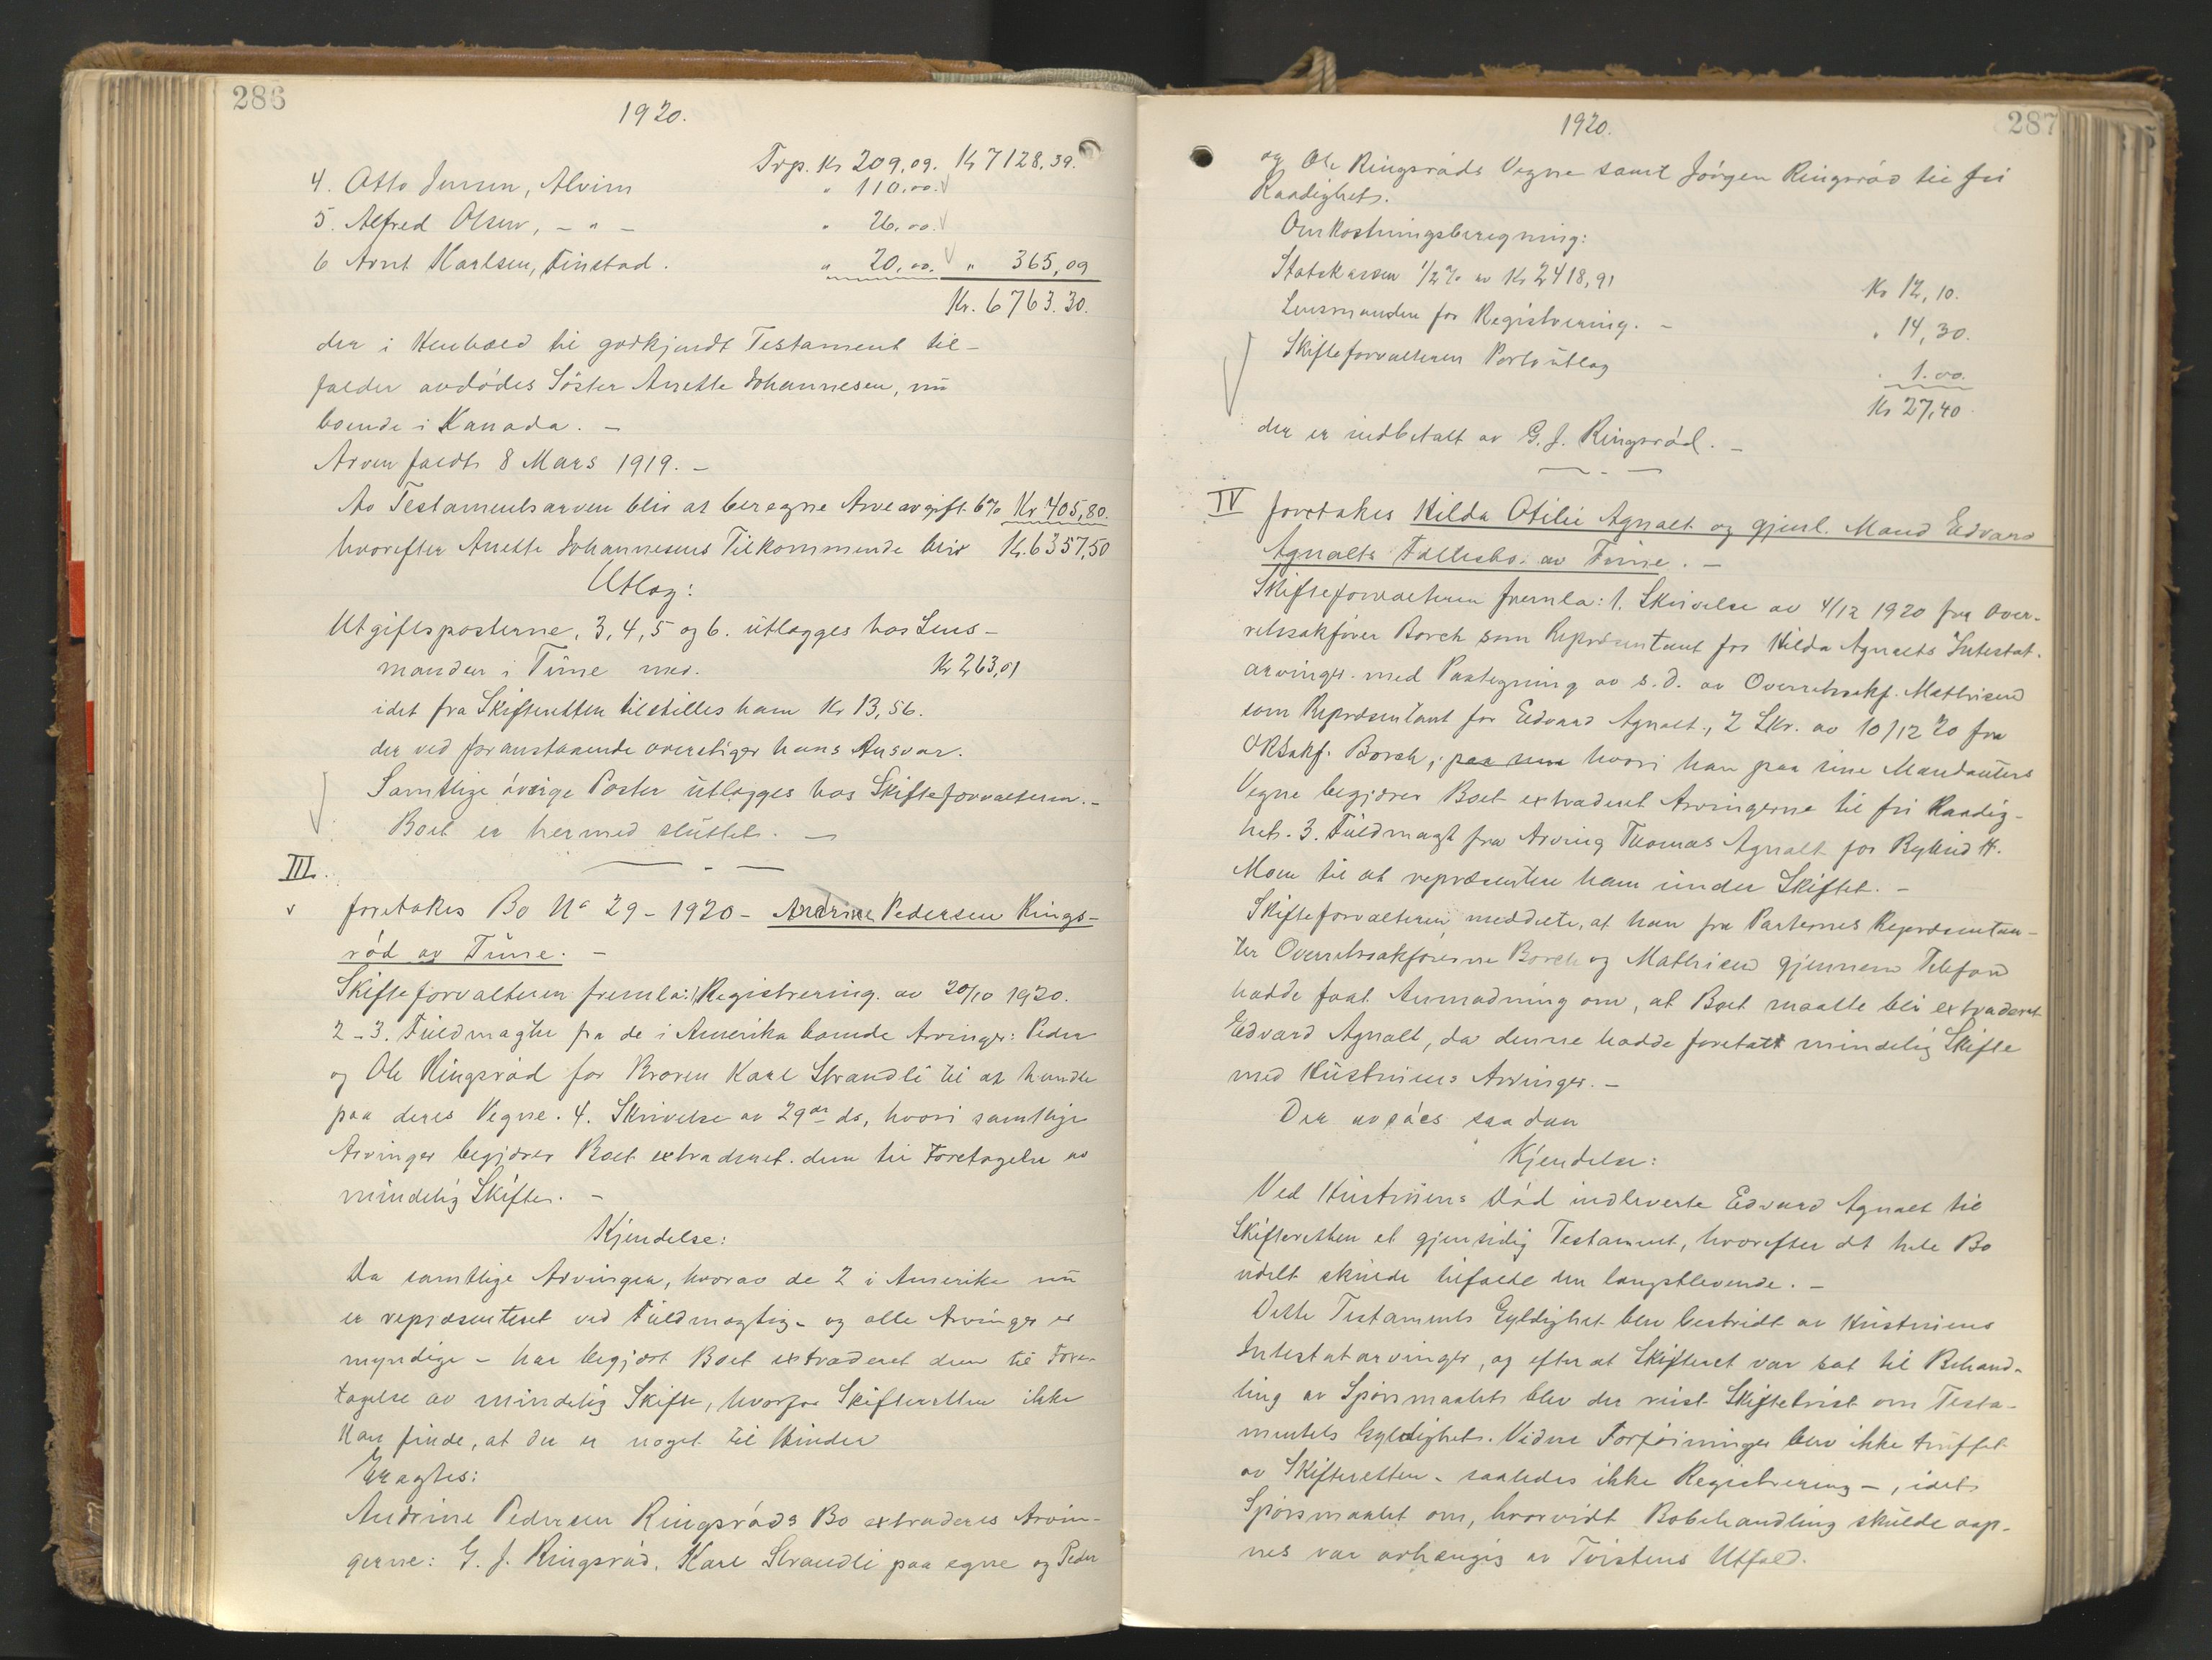 286
1920.
Trp. Kr 209,09. Kr 7128,39.
4. Otto Jensen, Alvim " 110,00.
5. Alfred Olsen, - " - " 26,00.
6 Arnt Karlsen, Finstad. " 20,00. " 365,09
Kr. 6763.30.
der i Henhold til godkjendt Testament til-
falder avdödes Söster Anette Johannesen, nu
boende i Kanada. -
Arven faldt 8 Mars 1919. -
Av Testamentsarven blir at beregne Arveavgift 6% Kr 405,80.
hvorefter Anette Johannesens Tilkommende blir Kr. 6357,50
Utlæg:
Utgiftsposterne, 3, 4, 5 og 6. utlægges hos Lens-
manden i Tune med. Kr 263,01
idet fra Skifteretten tilstilles ham Kr 13,56.
der ved foranstaaende overstiger hans Ansvar.
Samtlige övrige Poster utlægges hos Skifteforvalteren. -
Boet er hermed sluttet. -
III.
foretakes Bo No 29 - 1920 - Andrine Pedersen Rings-
röd av Tune. -
Skifteforvalteren fremla: 1 Registrering av 20/10 1920.
2 - 3. Fuldmagter fra de i Amerika boende Arvinger: Peder
og Ole Ringsröd for Broren Karl Strandli til at handle
paa deres Vegne. 4. Skrivelse av 29de ds, hvori samtlige
Arvinger begjærer Boet extraderet dem til Foretagelse av
mindelig Skifte. -
Kjendelse:
Da samtlige Arvinger, hvorav de 2 i Amerika nu
er repræsenteret ved Fuldmægtig - og alle Arvinger er
myndige - har begjært Boet extraderet dem til Fore-
tagelse av mindelig Skifte, hvorfor Skifteretten ikke
kan finde, at der er noget til Hinder
Eragtes:
Andrine Pedersen Ringsröds Bo extraderes Arvin-
gerne: G. J. Ringsröd, Karl Strandli paa egne og Peder
287
1920.
og Ole Ringsröds Vegne samt Jörgen Ringsröd til fri
Raadighet.
Omkostningsberegning:
Statskassen 1/2 % av Kr 2418,91 Kr 12,10.
Lensmanden for Registrering. - " 14,30.
Skifteforvalteren Portoutlæg " 1.00.
Kr 27,40
der er indbetalt av G. J. Ringsröd. -
IV foretakes Hilda Otilie Agnalt og gjenl. Mand Edvard
Agnalts Fællesbo av Tune. -
Skifteforvalteren fremla: 1. Skrivelse av 4/12 1920 fra Over-
retssakförer Borch som Repræsentant for Hilda Agnalts Intestat-
arvinger med Paategning av s.d. av Overretssakf. Mathisen
som Repræsentant for Edvard Agnalt, 2 Skr. av 10/12 20 fra
ORSakf. Borch, hvori han paa sine Mandanters
Vegne begjærer Boet extraderet Arvingerne til fri Raadig-
het. 3. Fuldmagt fra Arving Thomas Agnalt for H.
Moen til at repræsentere ham under Skiftet. -
Skifteforvalteren meddelte, at han fra Parternes Repræsentan-
ter Overretssakförerne Borch og Mathisen gjennem Telefon
hadde faat Anmodning om, at Boet maatte bli extraderet
Edvard Agnalt, da denne hadde foretatt mindelig Skifte
med Hustruens Arvinger. -
Der avsaes saadan
Kjendelse:
Ved Hustruens Död indleverte Edvard Agnalt til
Skifteretten et gjensidig Testament, hvorefter det hele Bo
udelt skulde tilfalde den længstlevende. -
Dette Testaments Gyldighet blev bestridt av Hustruens
Intestatarvinger, og efter at Skifteret var sat til Behand-
ling av Spörsmaalet blev der reist Skiftetvist om Testa-
mentets Gyldighet. Videre Forföininger blev ikke truffet
av Skifteretten - saaledes ikke Registrering -, idet
Spörsmaalet om, hvorvidt Bobehandling skulde aap-
nes var avhængig av Tvistens Utfald.